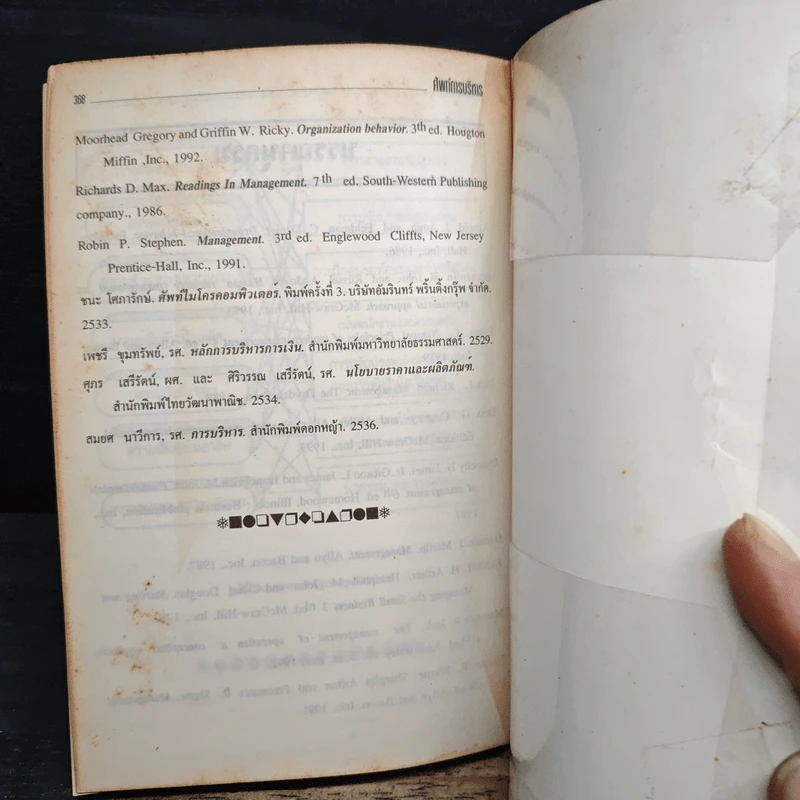 368 ศัพท์การบริหาร
Moorhead Gregory and Griffin W. Ricky. Organization behavior. 3th ed. Hougton
Miffin ,Inc., 1992.
Richards D. Max. Readings In Management. 7th ed. South-Western Publishing
company., 1986.
Robin P. Stephen. Management. 3rd ed. Englewood Cliffts, New Jersey
Prentice-Hall, Inc., 1991.
ชนะ โศภารักษ์. ศัพท์ไมโครคอมพิวเตอร์. พิมพ์ครั้งที่ 3. บริษัทอัมรินทร์ พริ้นติ้งกรุ๊พ จำกัด.
2533.
เพชรี ขุมทรัพย์, รศ. หลักการบริหารการเงิน. สำนักพิมพ์มหาวิทยาลัยธรรมศาสตร์. 2529.
ศุภร เสรีรัตน์, ผศ. และ ศิริวรรณ เสรีรัตน์, รศ. นโยบายราคาและผลิตภัณฑ์.
สำนักพิมพ์ไทยวัฒนาพาณิช. 2534.
สมยศ นาวีการ, รศ. การบริหาร. สำนักพิมพ์ดอกหญ้า. 2536.